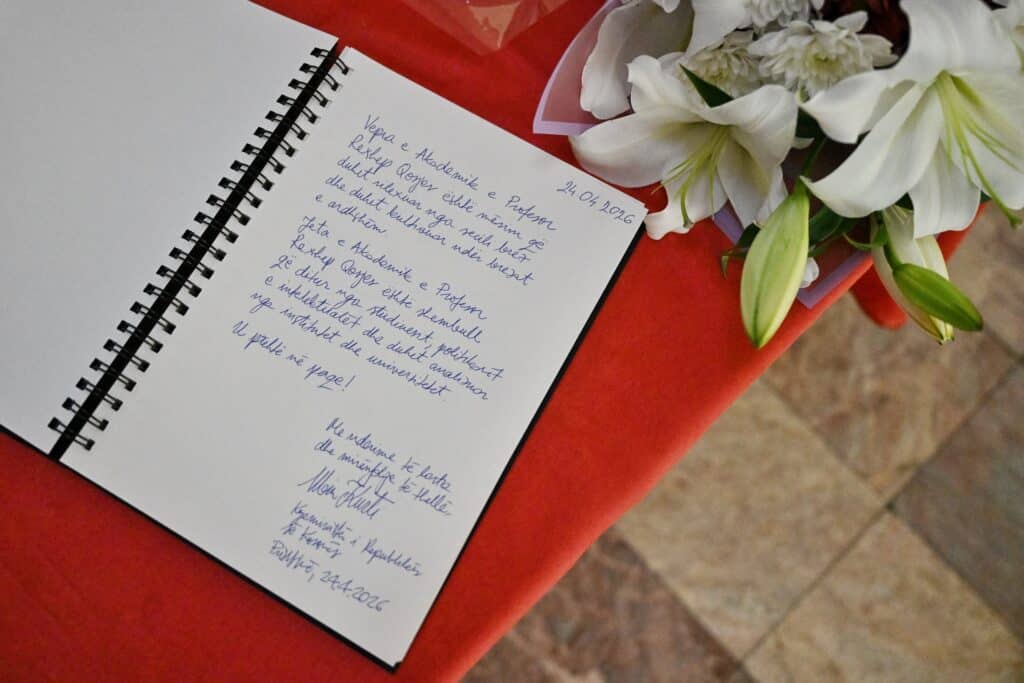 24.04.2026
Vepra e Akademik e Profesor
Rexhep Qosjes është mësim që
duhet nxexuar nga secili brez
dhe duhet kultivuar ndër brezat
e ardhshëm.
Jeta e Akademik e Profesor
Rexhep Qosjes është shembull
që duhet nga studiuesit, politikanët
e intelektualët dhe duhet analizuar
nga institutet dhe universitetet.
U preftë në paqe!
Me nderime të larta
dhe mirënjohje të thellë
Albin Kurti
Kryeministër i Republikës
së Kosovës
Prishtinë, 24.4.2026